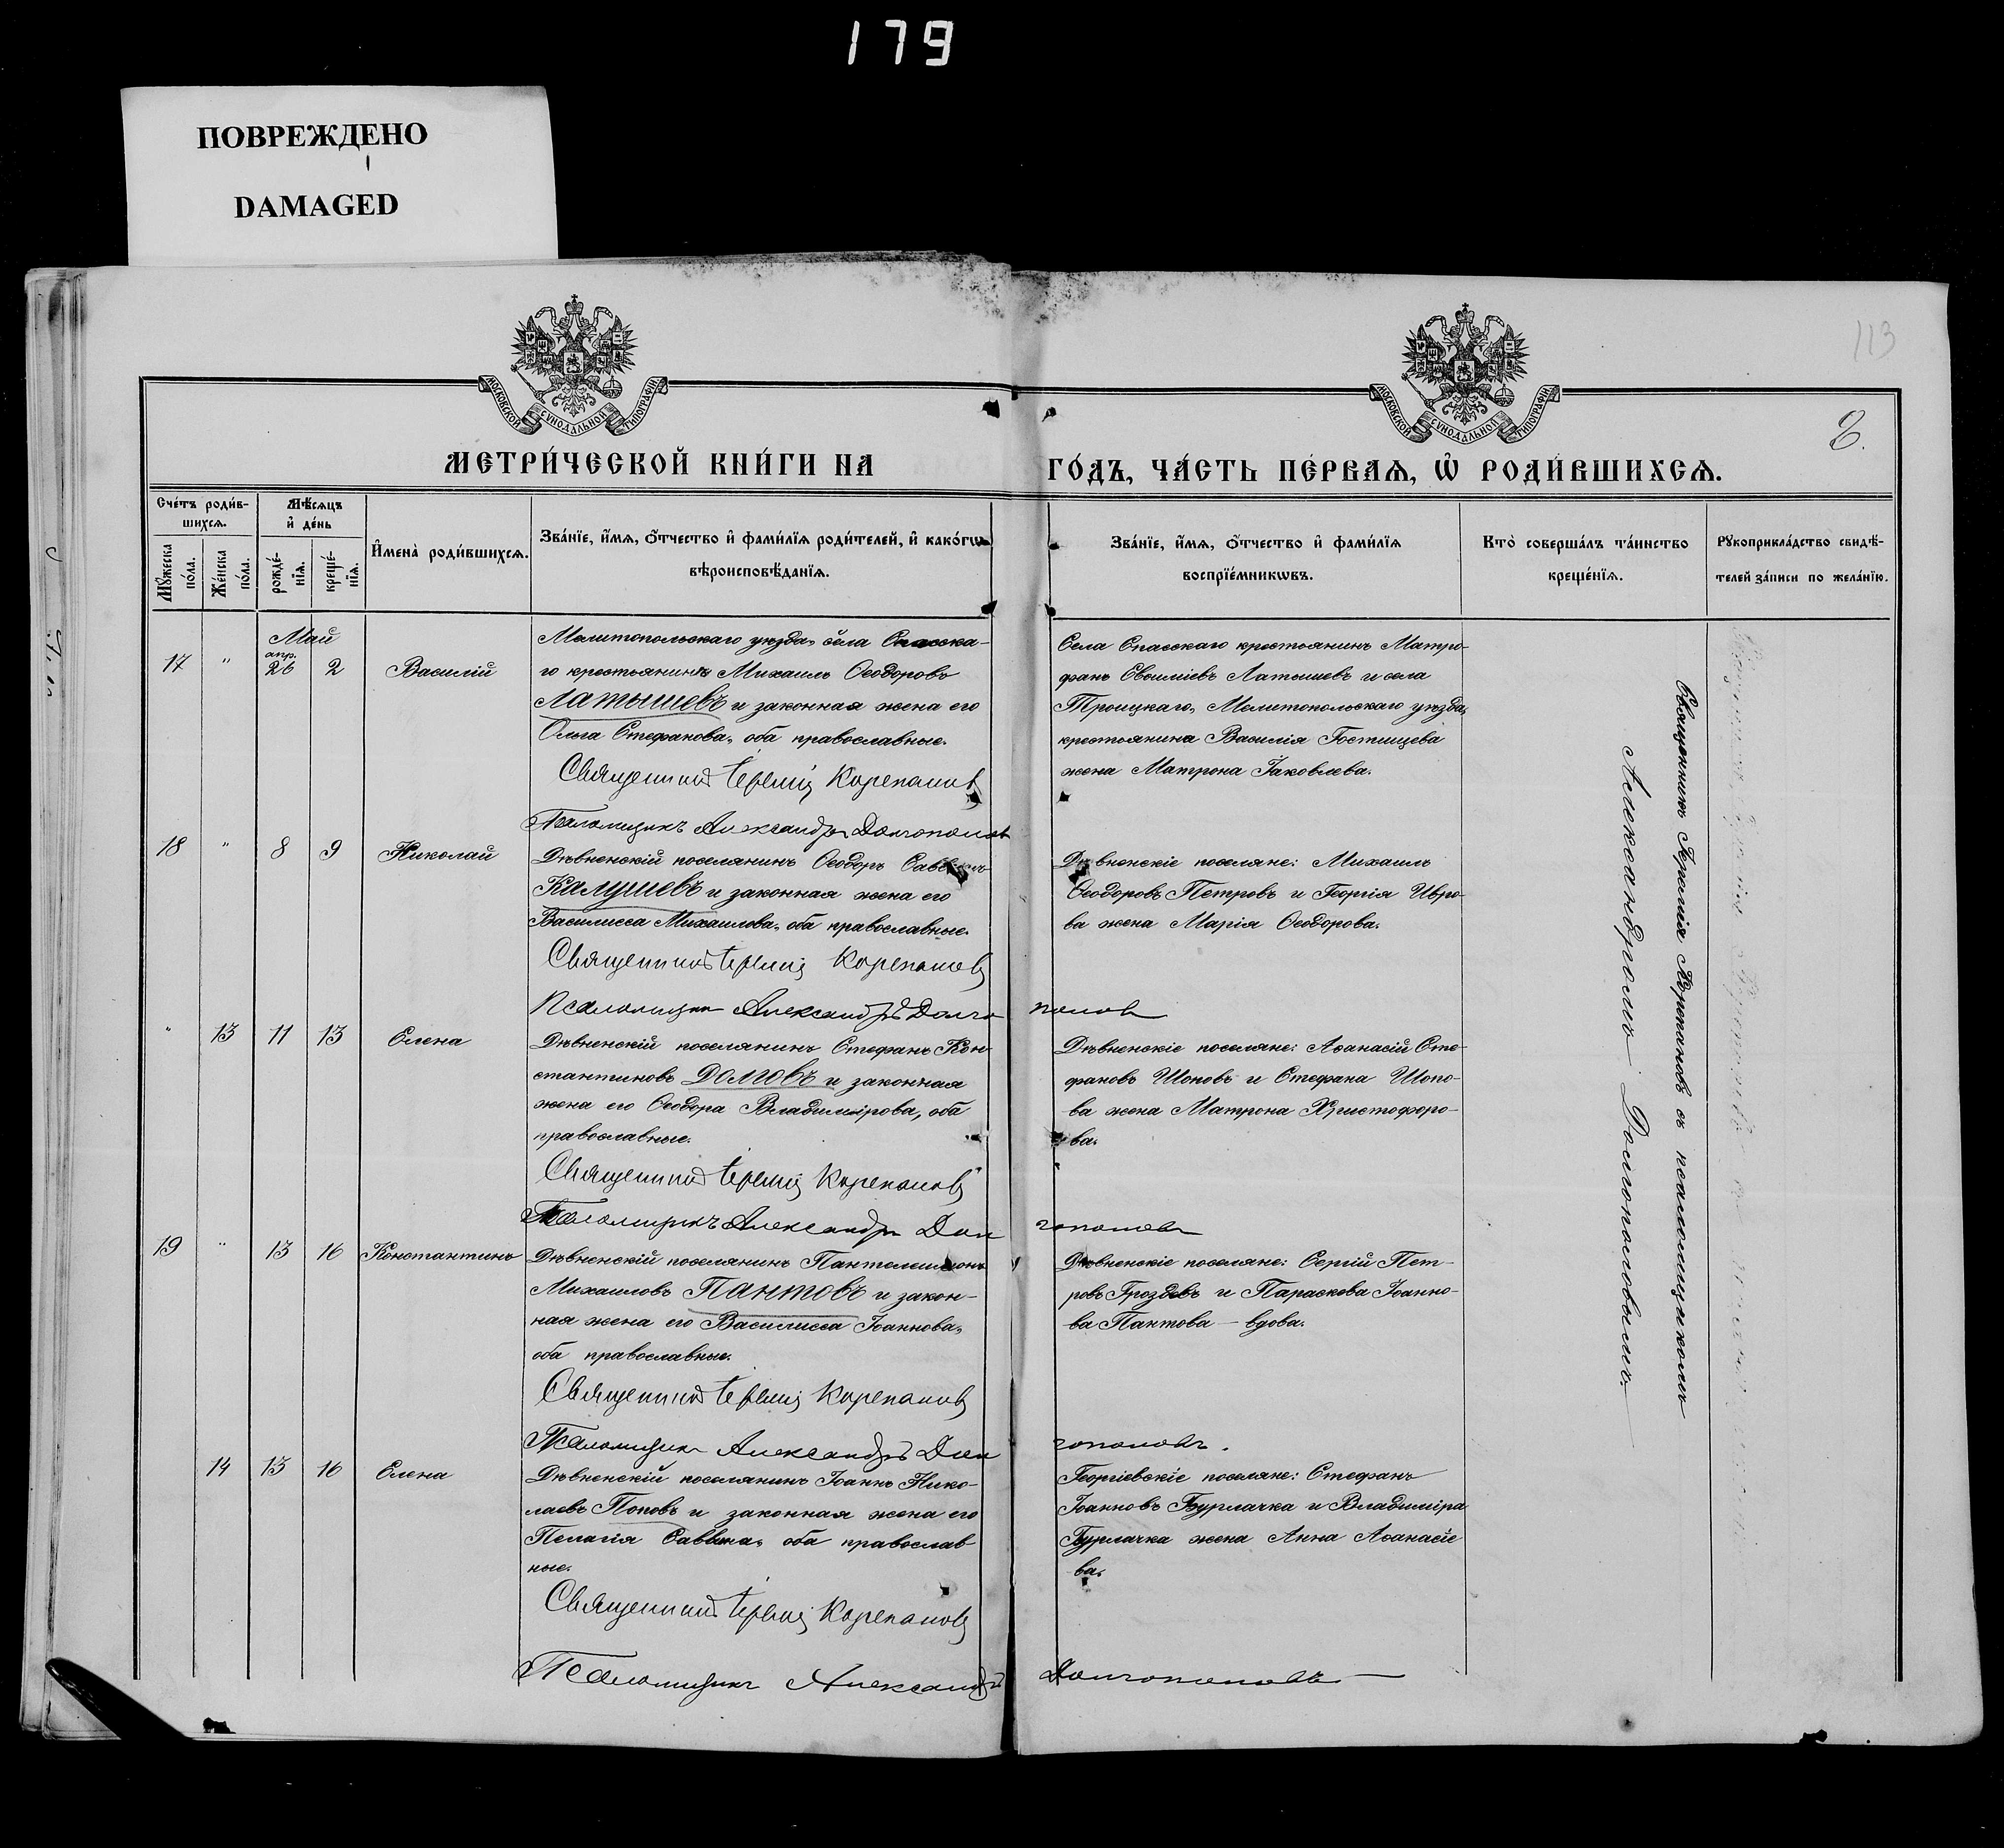 179
ПОВРЕЖДЕНО
DAMAGED
113
8.
МОСКОВСКОЙ СУНОДАЛЬНОЙ ТИПОГРАФІИ
МОСКОВСКОЙ СУНОДАЛЬНОЙ ТИПОГРАФІИ
МЕТРИ́ЧЕСКОЙ КНИ́ГИ НА
ГО́ДЪ, ЧА́СТЬ ПЕ́РВАЯ, Ѡ РОДИ́ВШИХСЯ.
Сче́тъ роди́в-
шихся.
Мѣ́сяцъ
и де́нь
Мꙋ́жеска
по́ла.
Же́нска
по́ла.
рожде́-
нїя.
креще́-
нїя.
И҆мена̀ роди́вшихся.
Зва́нїе, и҆́мя, ѻ҆́тчество и҆ фами́лїя роди́телей, и҆ како́гѡ
вѣроисповѣ́данїя.
Зва́нїе, и҆́мя, ѻ҆́тчество и҆ фами́лїя
воспрїе́мникѡвъ.
Кто̀ соверша́лъ та́инство
креще́нїя.
Рꙋкоприкла́дство свидѣ́-
телей за́писи по жела́нїю.
Май
17 " апр. 26 2 Василій
Мелитопольскаго уѣзда, села Спасска-
го крестьянинъ Михаилъ Ѳеодоровъ
Латышевъ и законная жена его
Ольга Стефанова, оба православные.
Священникъ Іеремія Корепановъ
Псаломщикъ Александръ Долгополов
Села Спасскаго крестьянинъ Митро-
фанъ Евѳиміевъ Латышевъ и села
Троицкаго, Мелитопольскаго уѣзда,
крестьянина Василія Гостищева
жена Матрона Іаковлева.
18 " 8 9 Николай
Дѣвненскій поселянинъ Ѳеодоръ Саввинъ
Калушевъ и законная жена его
Василисса Михаилова, оба православные.
Священникъ Іеремія Корепановъ
Псаломщик Александръ Долгополов
Дѣвненскіе поселяне: Михаилъ
Ѳеодоровъ Петровъ и Георгія Ивро-
ва жена Марія Ѳеодорова.
" 13 11 13 Елена
Дѣвненскій поселянинъ Стефанъ Кон-
стантиновъ Долговъ и законная
жена его Ѳеодора Владимірова, оба
православные.
Священникъ Іеремія Корепановъ
Псаломщикъ Александръ Долгополов
Дѣвненскіе поселяне: Аѳанасій Сте-
фановъ Шоповъ и Стефана Шопо-
ва жена Матрона Христофоро-
ва.
19 " 13 16 Константинъ
Дѣвненскій поселянинъ Пантелеимонъ
Михаиловъ Пантовъ и закон-
ная жена его Василисса Іоаннова,
оба православные.
Священникъ Іеремія Корепановъ
Псаломщик Александръ Долгополовъ.
Дѣвненскіе поселяне: Сергій Пет-
ровъ Гроздевъ и Параскева Іоанно-
ва Пантова — вдова.
14 13 16 Елена
Дѣвненскій поселянинъ Іоаннъ Нико-
лаевъ Поповъ и законная жена его
Пелагія Саввина, оба православ
ные.
Священникъ Іеремія Корепановъ
Псаломщикъ Александръ Долгополовъ
Георгіевскіе поселяне: Стефанъ
Іоанновъ Бурлачка и Владиміра
Бурлачка жена Анна Аѳанасіе
ва.
Священникъ Іеремія Корепановъ съ псаломщикомъ
Александромъ Долгополовымъ.